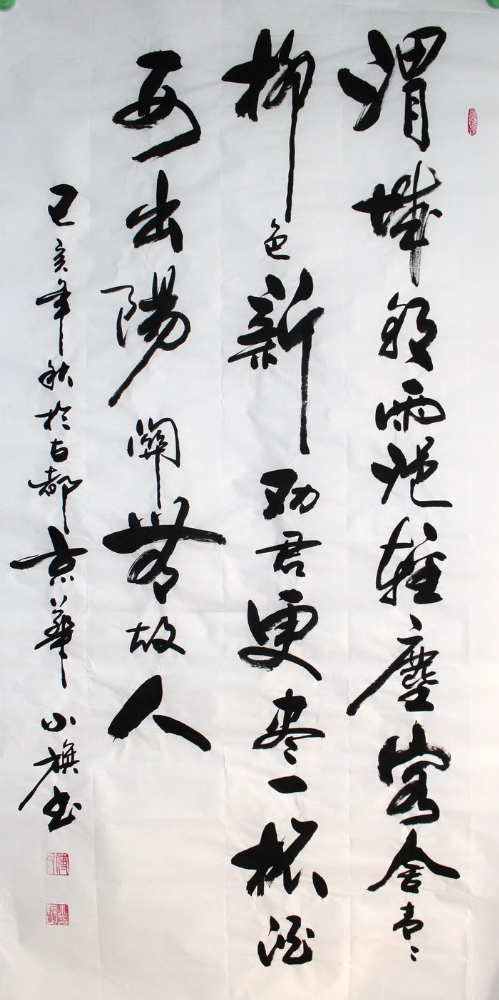 渭城朝雨浥輕塵客舍青々
柳色新劝君更盡一杯酒
西出陽關無故人
己亥年秋於古都京華小旗书